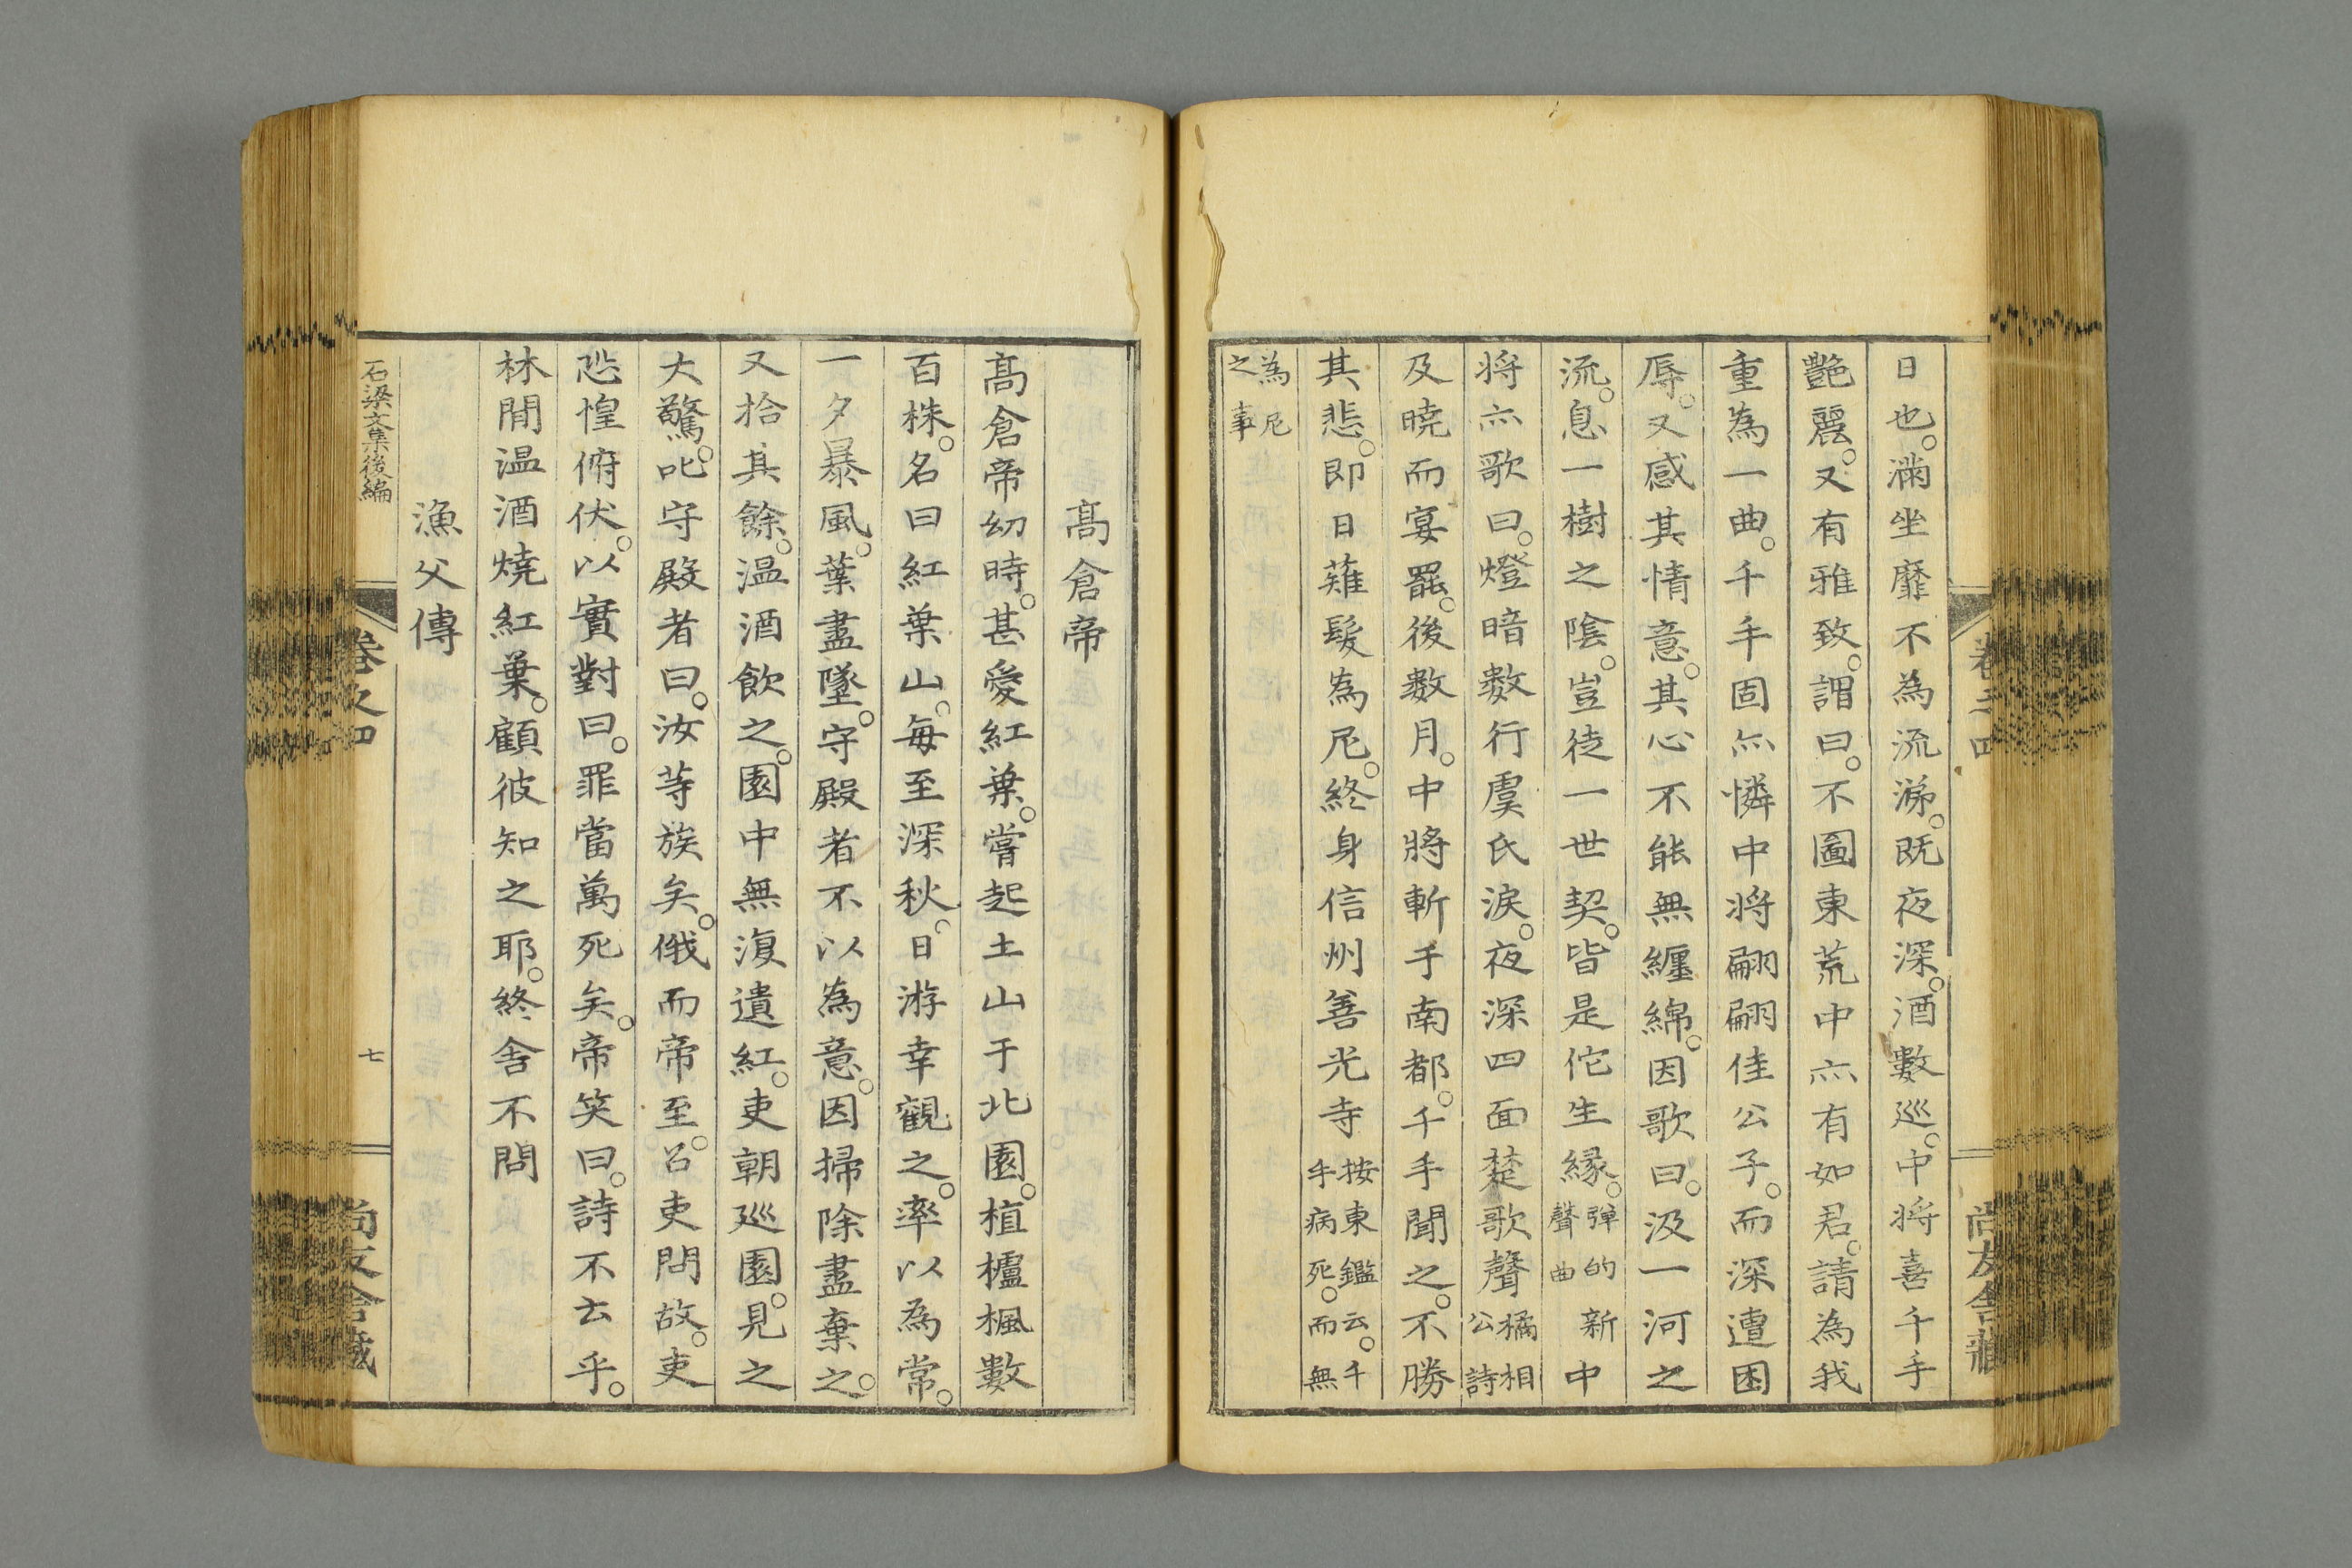 日也。滿坐靡不為流涕。既夜深。酒數巡。中將喜千手
艷麗。又有雅致。謂曰。不圖東荒中亦有如君。請為我
重為一曲。千手固亦憐中将翩翩佳公子。而深遭困
辱。又感其情意。其心不能無纏綿。因歌曰。汲一河之
流。息一樹之陰。豈徒一世契。皆是佗生緣。弾的新聲曲中
将亦歌曰。燈暗数行虞氏涙。夜深四面楚歌聲橘相公詩
及曉而宴罷。後数月。中將斬于南都。千手聞之。不勝
其悲。即日薙髮為尼。終身信州善光寺按東鑑云。千手病死。而無
為尼之事
高倉帝
高倉帝幼時。甚愛紅葉。嘗起土山于北園。植櫨楓數
百株。名曰紅葉山。每至深秋。日游幸觀之。率以為常。
一夕暴風。葉盡墜。守殿者不以為意。因掃除盡棄之。
又拾其餘。温酒飲之。園中無復遺紅。吏朝巡園。見之
大驚。叱守殿者曰。汝等族矣。俄而帝至。召吏問故。吏
恐惶俯伏。以實對曰。罪當萬死矣。帝笑曰。詩不云乎。
林間温酒燒紅葉。顧彼知之耶。終舍不問
漁父傳
石梁文集後編
卷之四
七
尚友舍藏